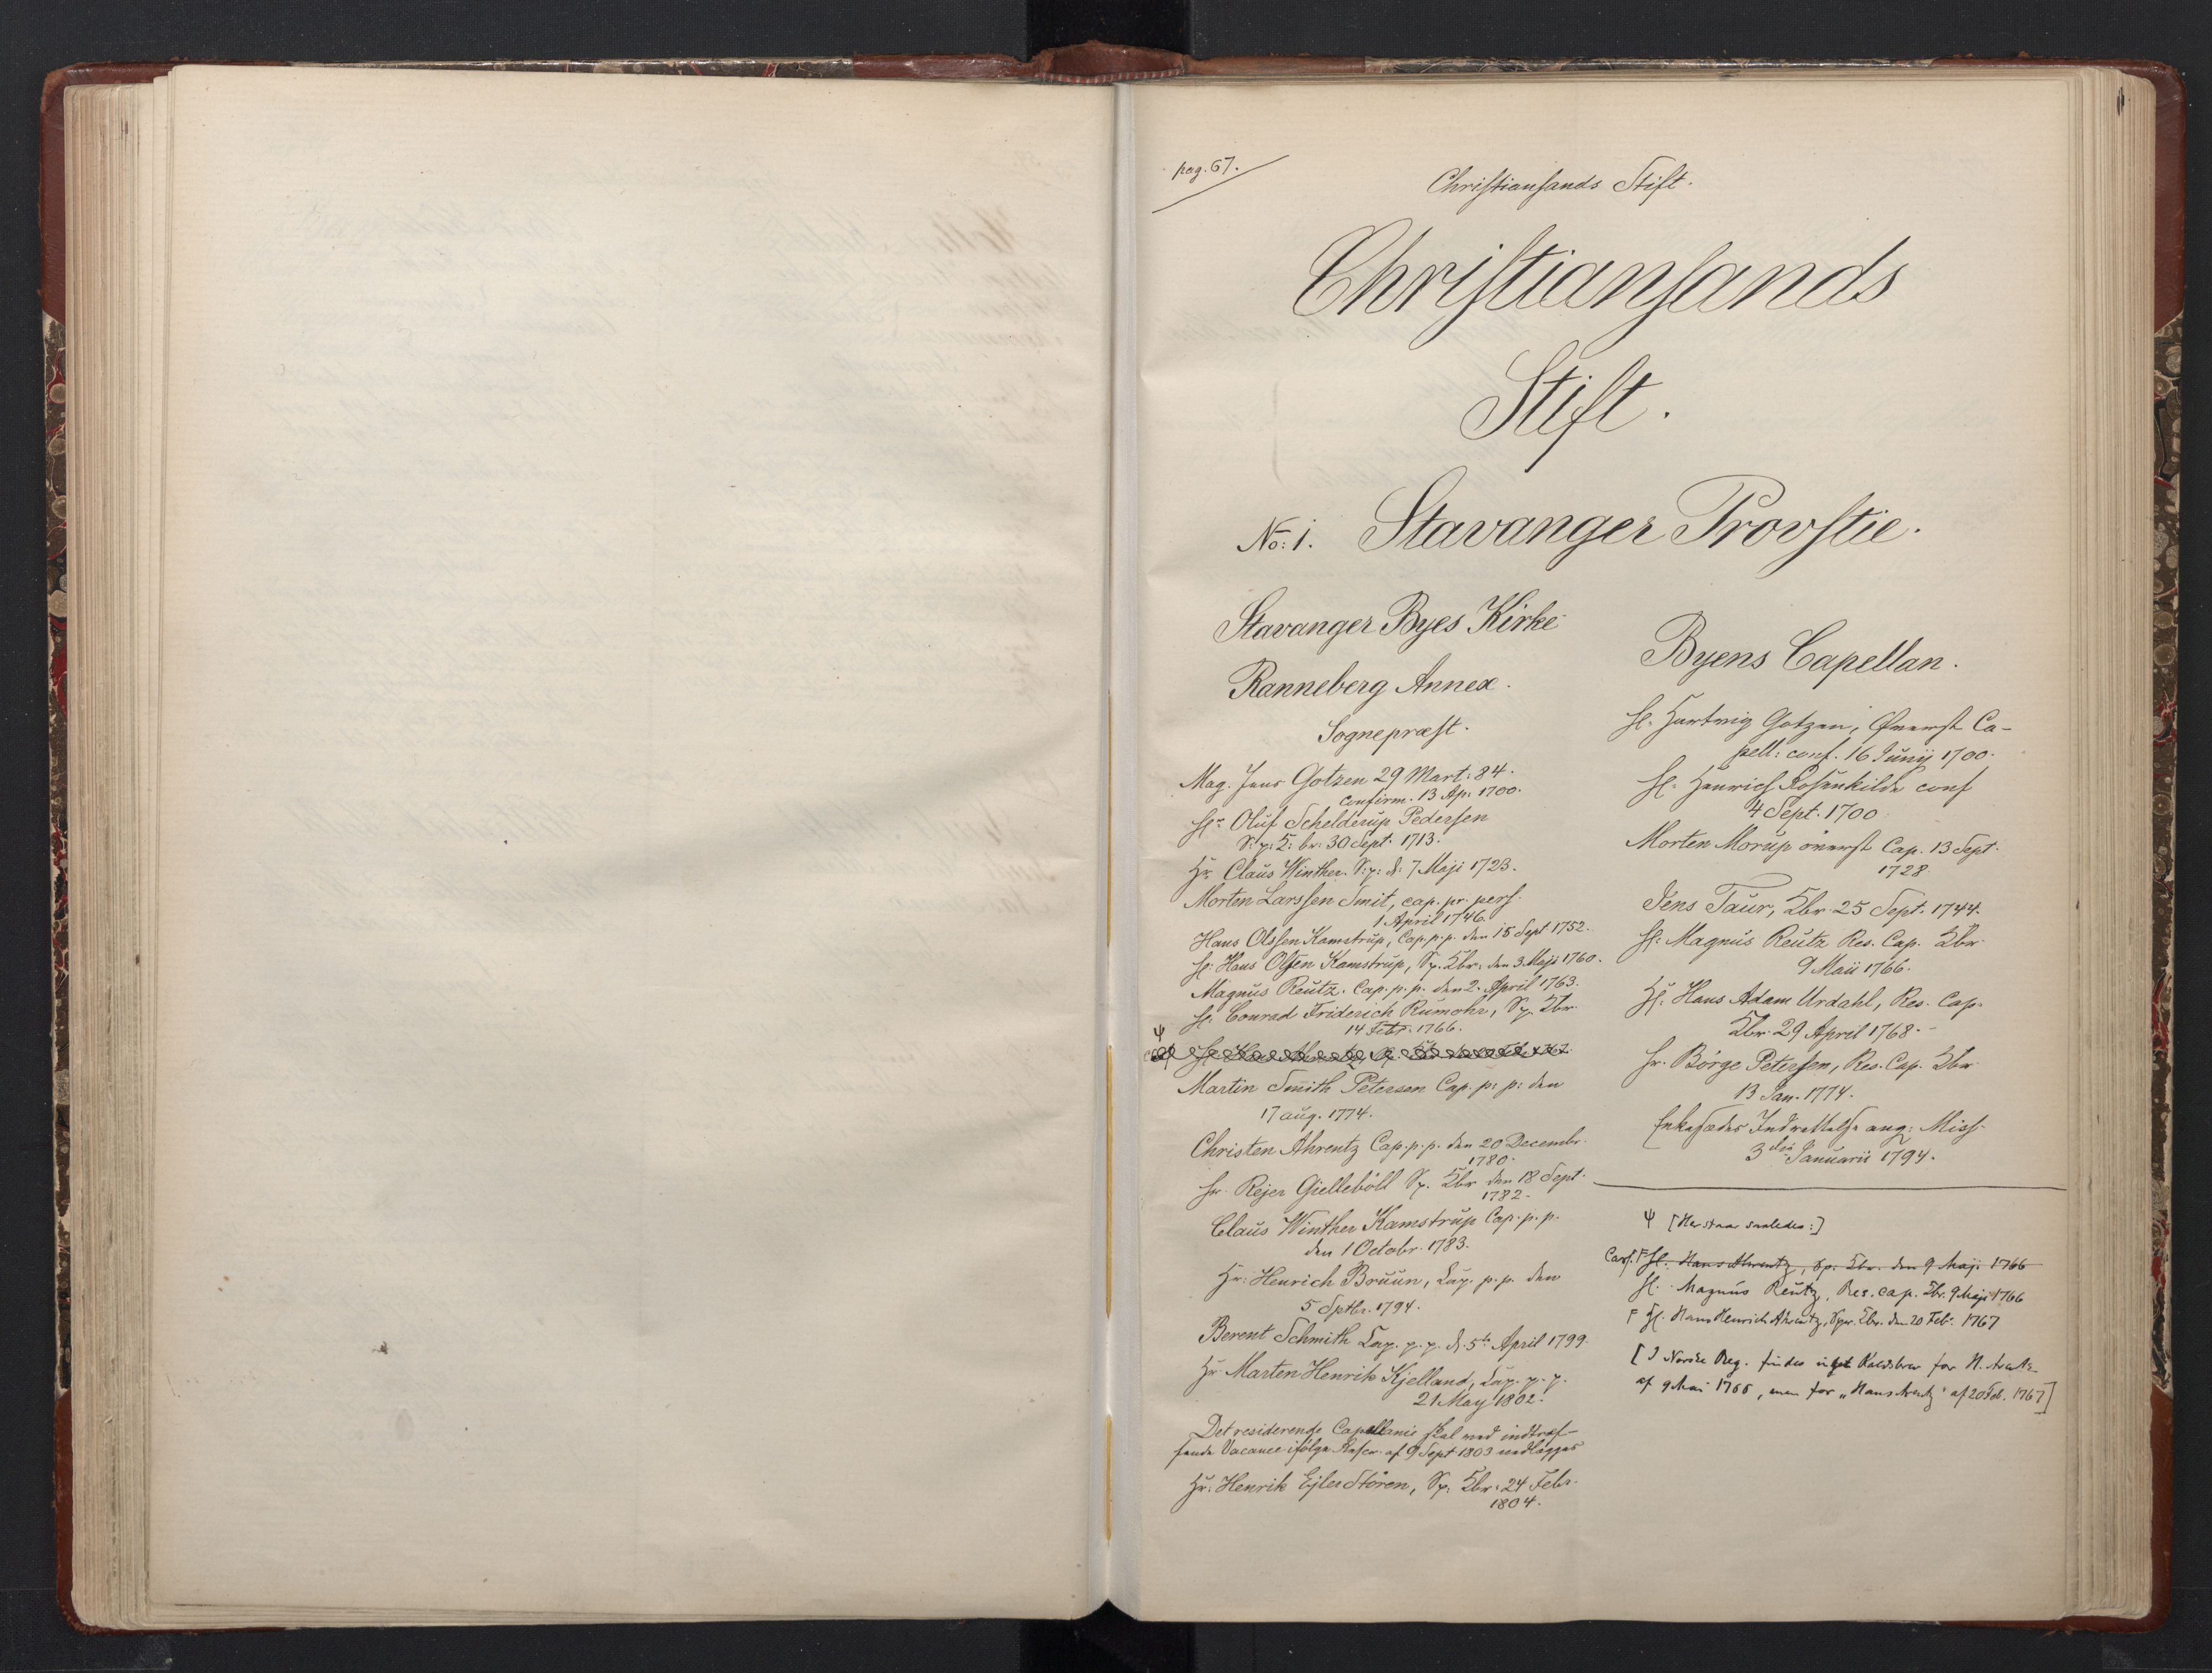 pag. 67.
Christiansands Stift.
Christiansands
Stift.
No: 1. Stavanger Provstie.
Stavanger Byes Kirke
Ranneberg Annex.
Sognepræst.
Mag. Jens Gotzen 29 Mart: 84.
confirm. 13 Ap: 1700.
Hr. Oluf Schelderup Pedersen
S: p: K: br: 30 Sept. 1713.
Hr. Claus Winther. S: p: d: 7 Maji 1723.
Morten Larssen Smit, cap. pr. pers.
1. April 1746.
Hans Olssen Kamstrup, Cap. p. p. den 15 Sept 1752.
Hr. Hans Olsen Kamstrup, Sp. Kbr: den 3 Maji 1760.
Magnus Reutz. Cap. p. p. den 2. April 1763.
Hr. Conrad Friderich Rumohr, Sp. Kbr.
14 Febr. 1766.
Ψ
Martin Smith Petersen Cap. p: p: den
17 aug. 1774.
Christen Ahrentz Cap. p. p. den 20 Decembr.
1780.
Hr. Rejer Gielleböll Sp. Kbr den 18 Sept.
1782.
Claus Winther Kamstrup Cap. p. p.
den 1 Octobr. 1783.
Hr: Henrich Bruun, Cap. p. p. den
5 Sptbr. 1794.
Berent Schmith Cap. p. p. d. 5te April 1799.
Hr Marten Henrik Kjelland, Cap. p. p.
21 May 1802.
Det residerende Capellanie skal ved indtræf-
fende Vacance ifølge Rescr. af 9 Sept 1803 nedlægges
Hr: Henrik Ejler Stören, Sp: Kbr: 24 Febr.
1804.
Byens Capellan.
Hr. Hartwig Gotzen, Øverst Ca-
pell: conf. 16 Junij 1700.
Hr. Henrich Rosenkilde conf
4 Sept. 1700
Morten Morup överst Cap. 13 Sept.
1728
Jens Taur, Kbr. 25 Sept. 1744.
Hr. Magnus Reutz Res. Cap. Kbr
9 Maii 1766.
Hr: Hans Adam Urdahl, Res. Cap.
Kbr. 29 April 1768.
Hr. Börge Petersen, Res. Cap. Kbr
13 Jan. 1774.
Enkesædes Indrettelse ang: Miss.
3die Januarii 1794.
Ψ [Her staar saaledes:]
Hr. Hans Ahrentz, Sp. Kbr. den 9 Maji 1766
Hr. Magnus Reutz, Res. cap. Kbr. 9 Maji 1766
F Hr. Hans Henrich Ahrentz, Spr. Kbr. den 20 Feb. 1767
[I Norske Reg. findes intet Kaldsbrev for H. Arentz
af 9 Mai 1766, men for "Hans Arentz" af 20 Feb. 1767]